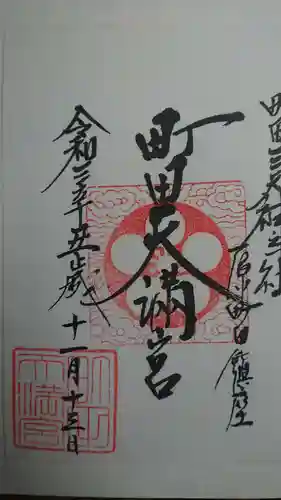 町田三天神之社
原町田鎮座
町田天満宮
令和三年丑歳十一月十三日
町田天満宮